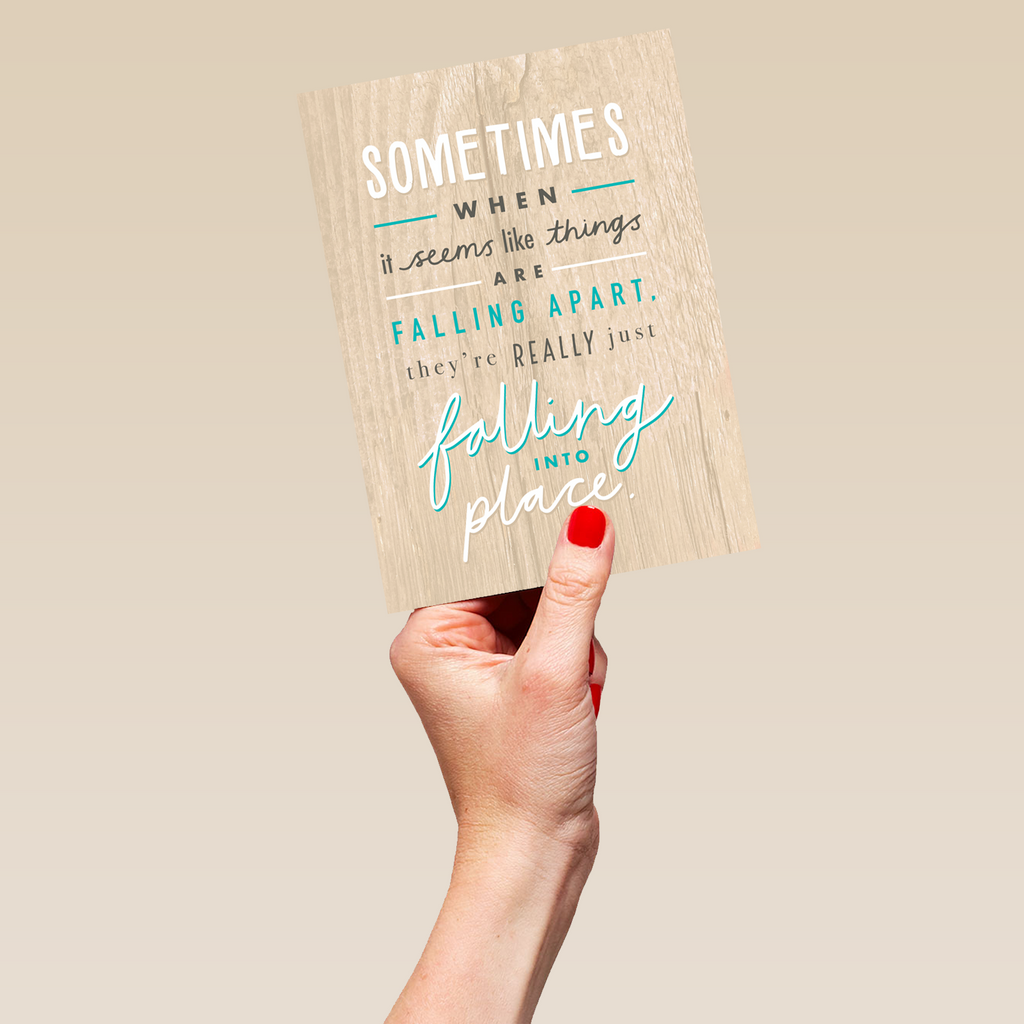 SOMETIMES
WHEN
it seems like things
ARE
FALLING APART,
they're REALLY just
falling
INTO
place.